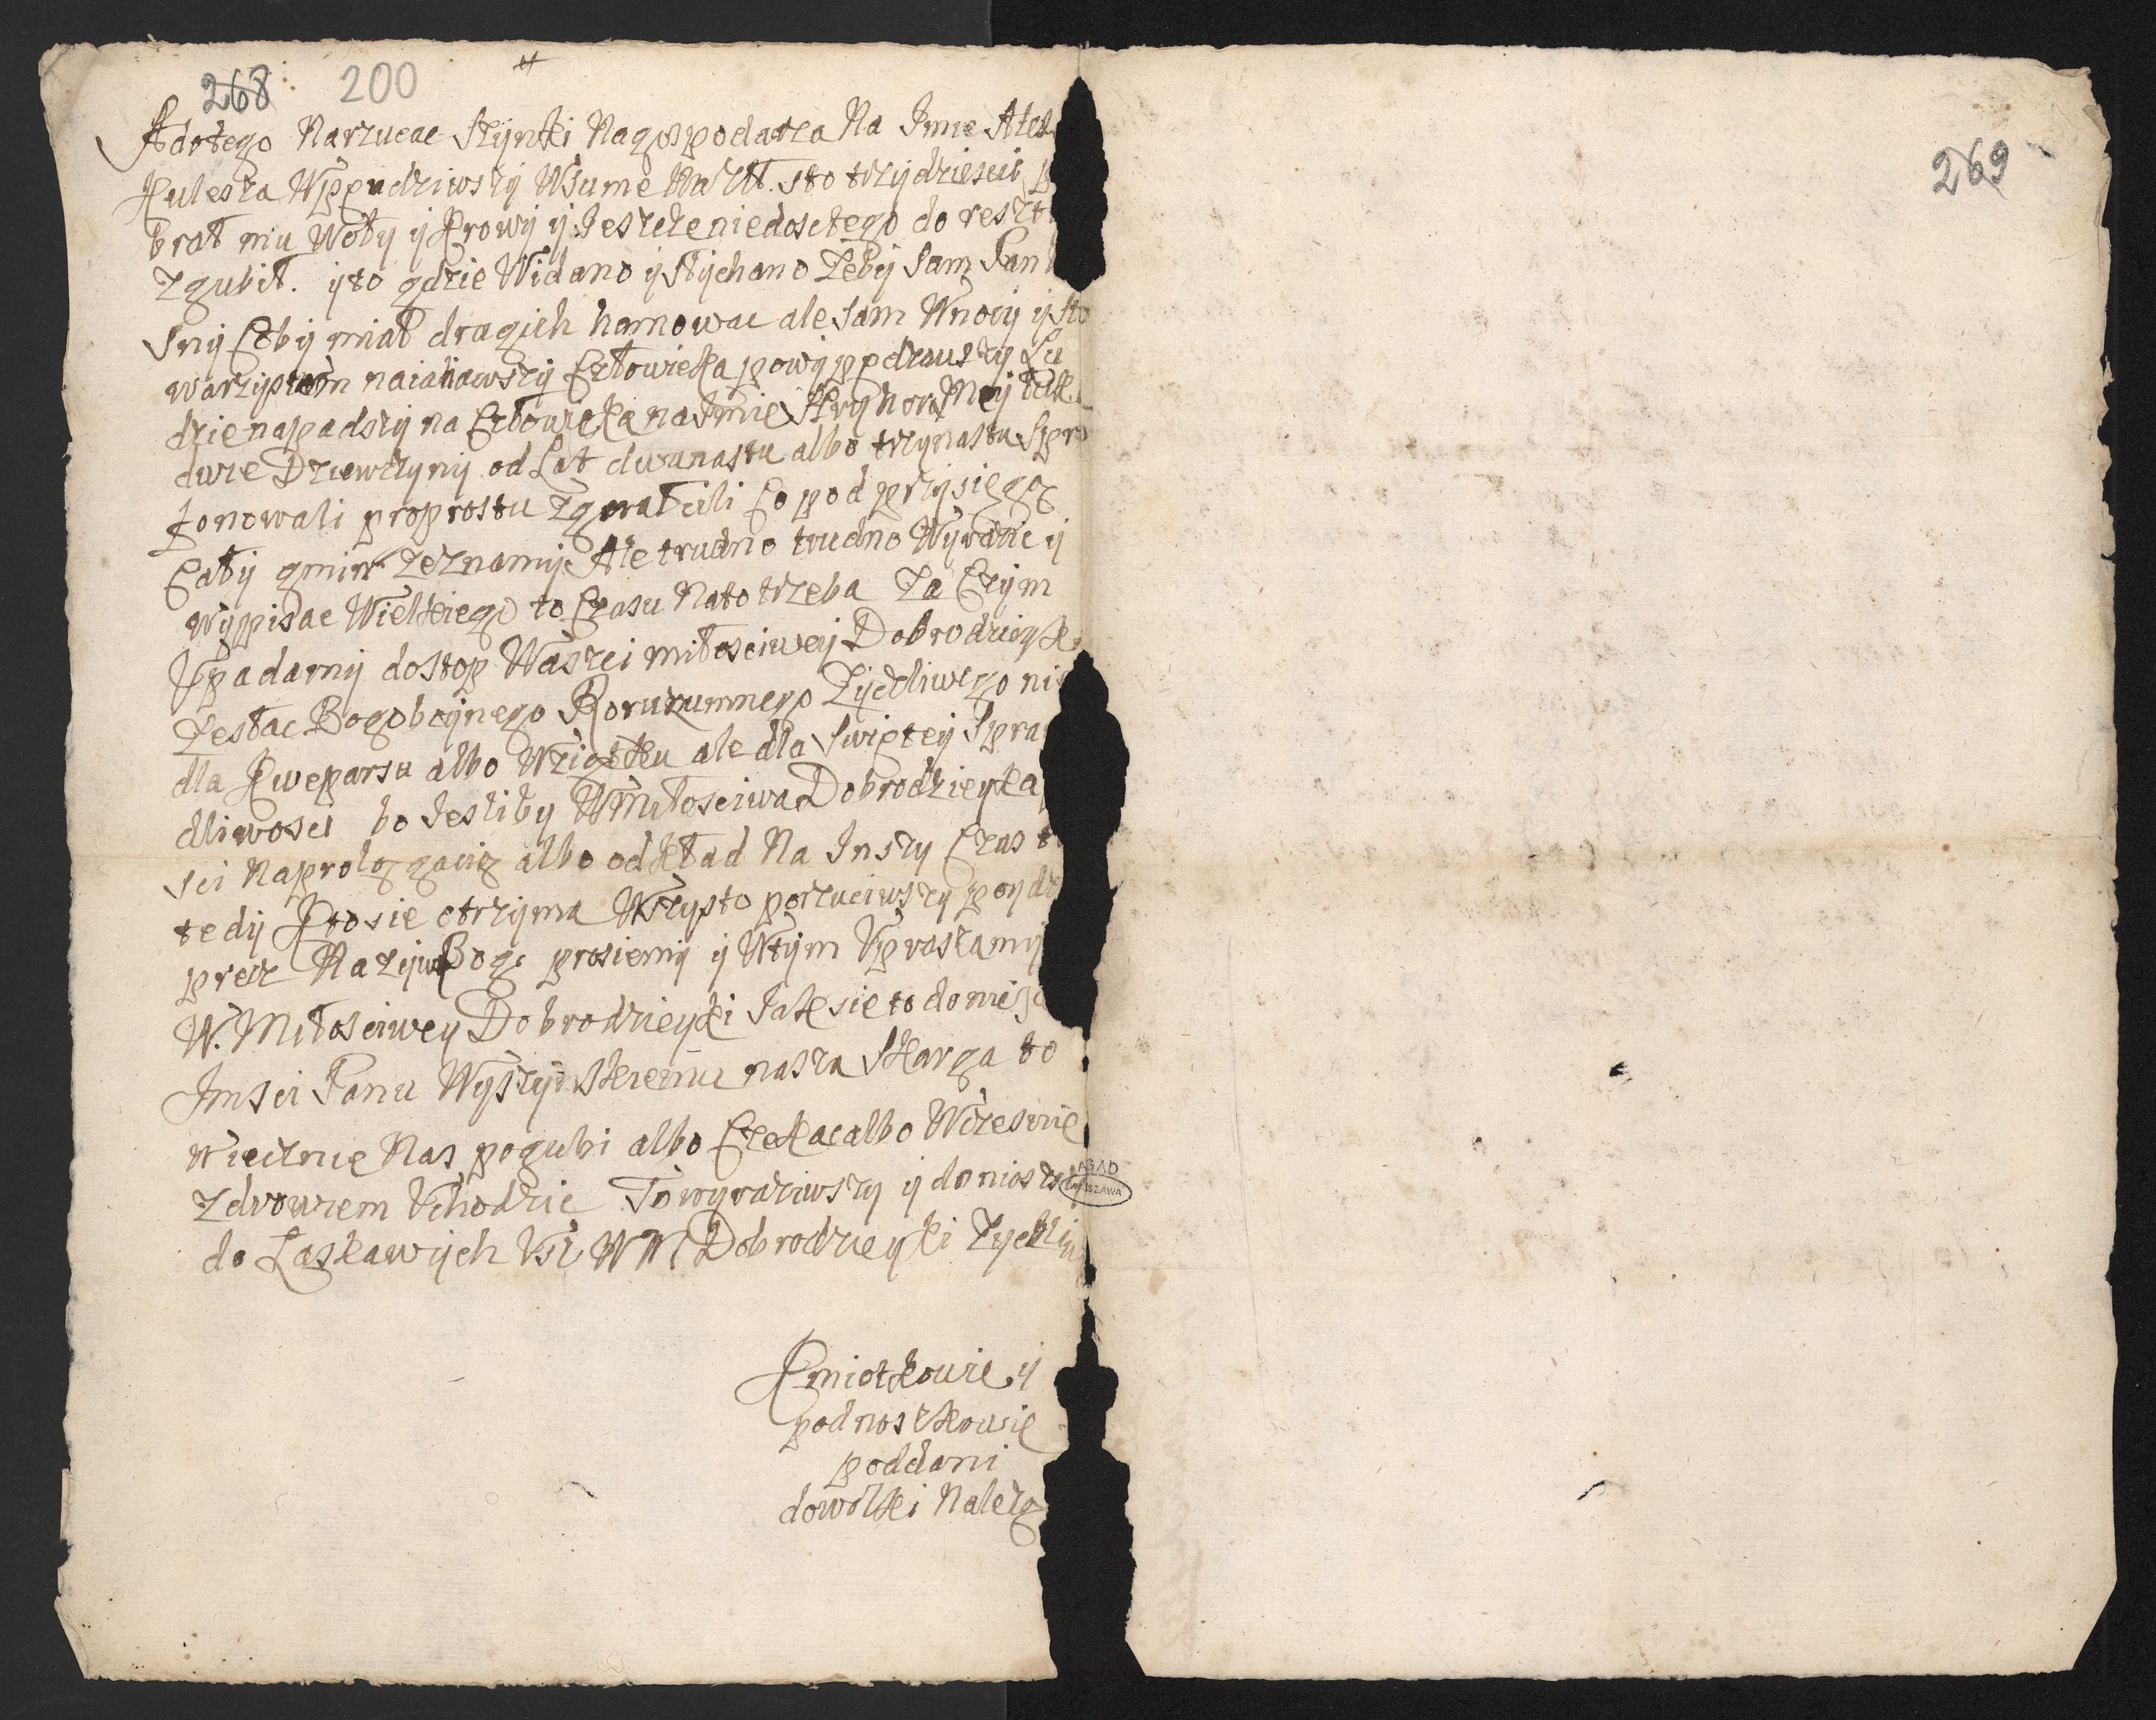 268 200
A do tego Narzucac Szynki Na gospodarza Na Imie Alex
Kulesza Wpędziwszy Wsume Na Zll. sto trzydziesci
brał mu Woły y Krowy y Jeszcze niedosc tego do reszt
Zgubił. y to gdzie Widano y słychano Zeby Sam Pan
sny Coby miał drugich hamowac ale sam Wnocy y sto
warzystem naiachawszy Człowieka powypędzawszy Lu
dzie napadszy na Człowieka na Imie Hryhora
dwie Dziewczyny od Lat dwunastu albo trzynastu Spro
fonowali proprostu Zgwałcili Co pod przysięgą
Cały gmin Zeznamy Ale trudno trudno Wyrazic y
wypisac Wielkiego to Czasu Nato trzeba Za Czym
Upadamy do stop Waszei miłosciwey Dobrodzieyki
Zesłac Bogoboynego Rozuzumnego Zyczliwego nie
dla Kweparsu albo Wziątku ale dla Swiętey Spra
dliwosci bo Jesliby WMiłosciwa Dobrodzieyka
sci Naprologgacią albo odkład Na Inszy Czas
tedy Kto sie otrzyma Wszysto porzuciwszy poydz
precz Na zywy Boge prosiemy y Wtym Upraszamy
W. Miłosciwey Dobrodzieyki Jak sie to doniese
Jmsci Panu Wyszynskiemu nasza Skarga to
wiecznie Nas pogubi albo Czekac albo Wczesnie
Zdrowiem Uchodzic To wyraziwszy y doniozszy
do Laskawych Usz WM Dobrodzieyki Zyczliw
Kmiotkowie y
podnoszkowie
poddani
dowolki Nalezą
269
AGAD
WARSZAWA